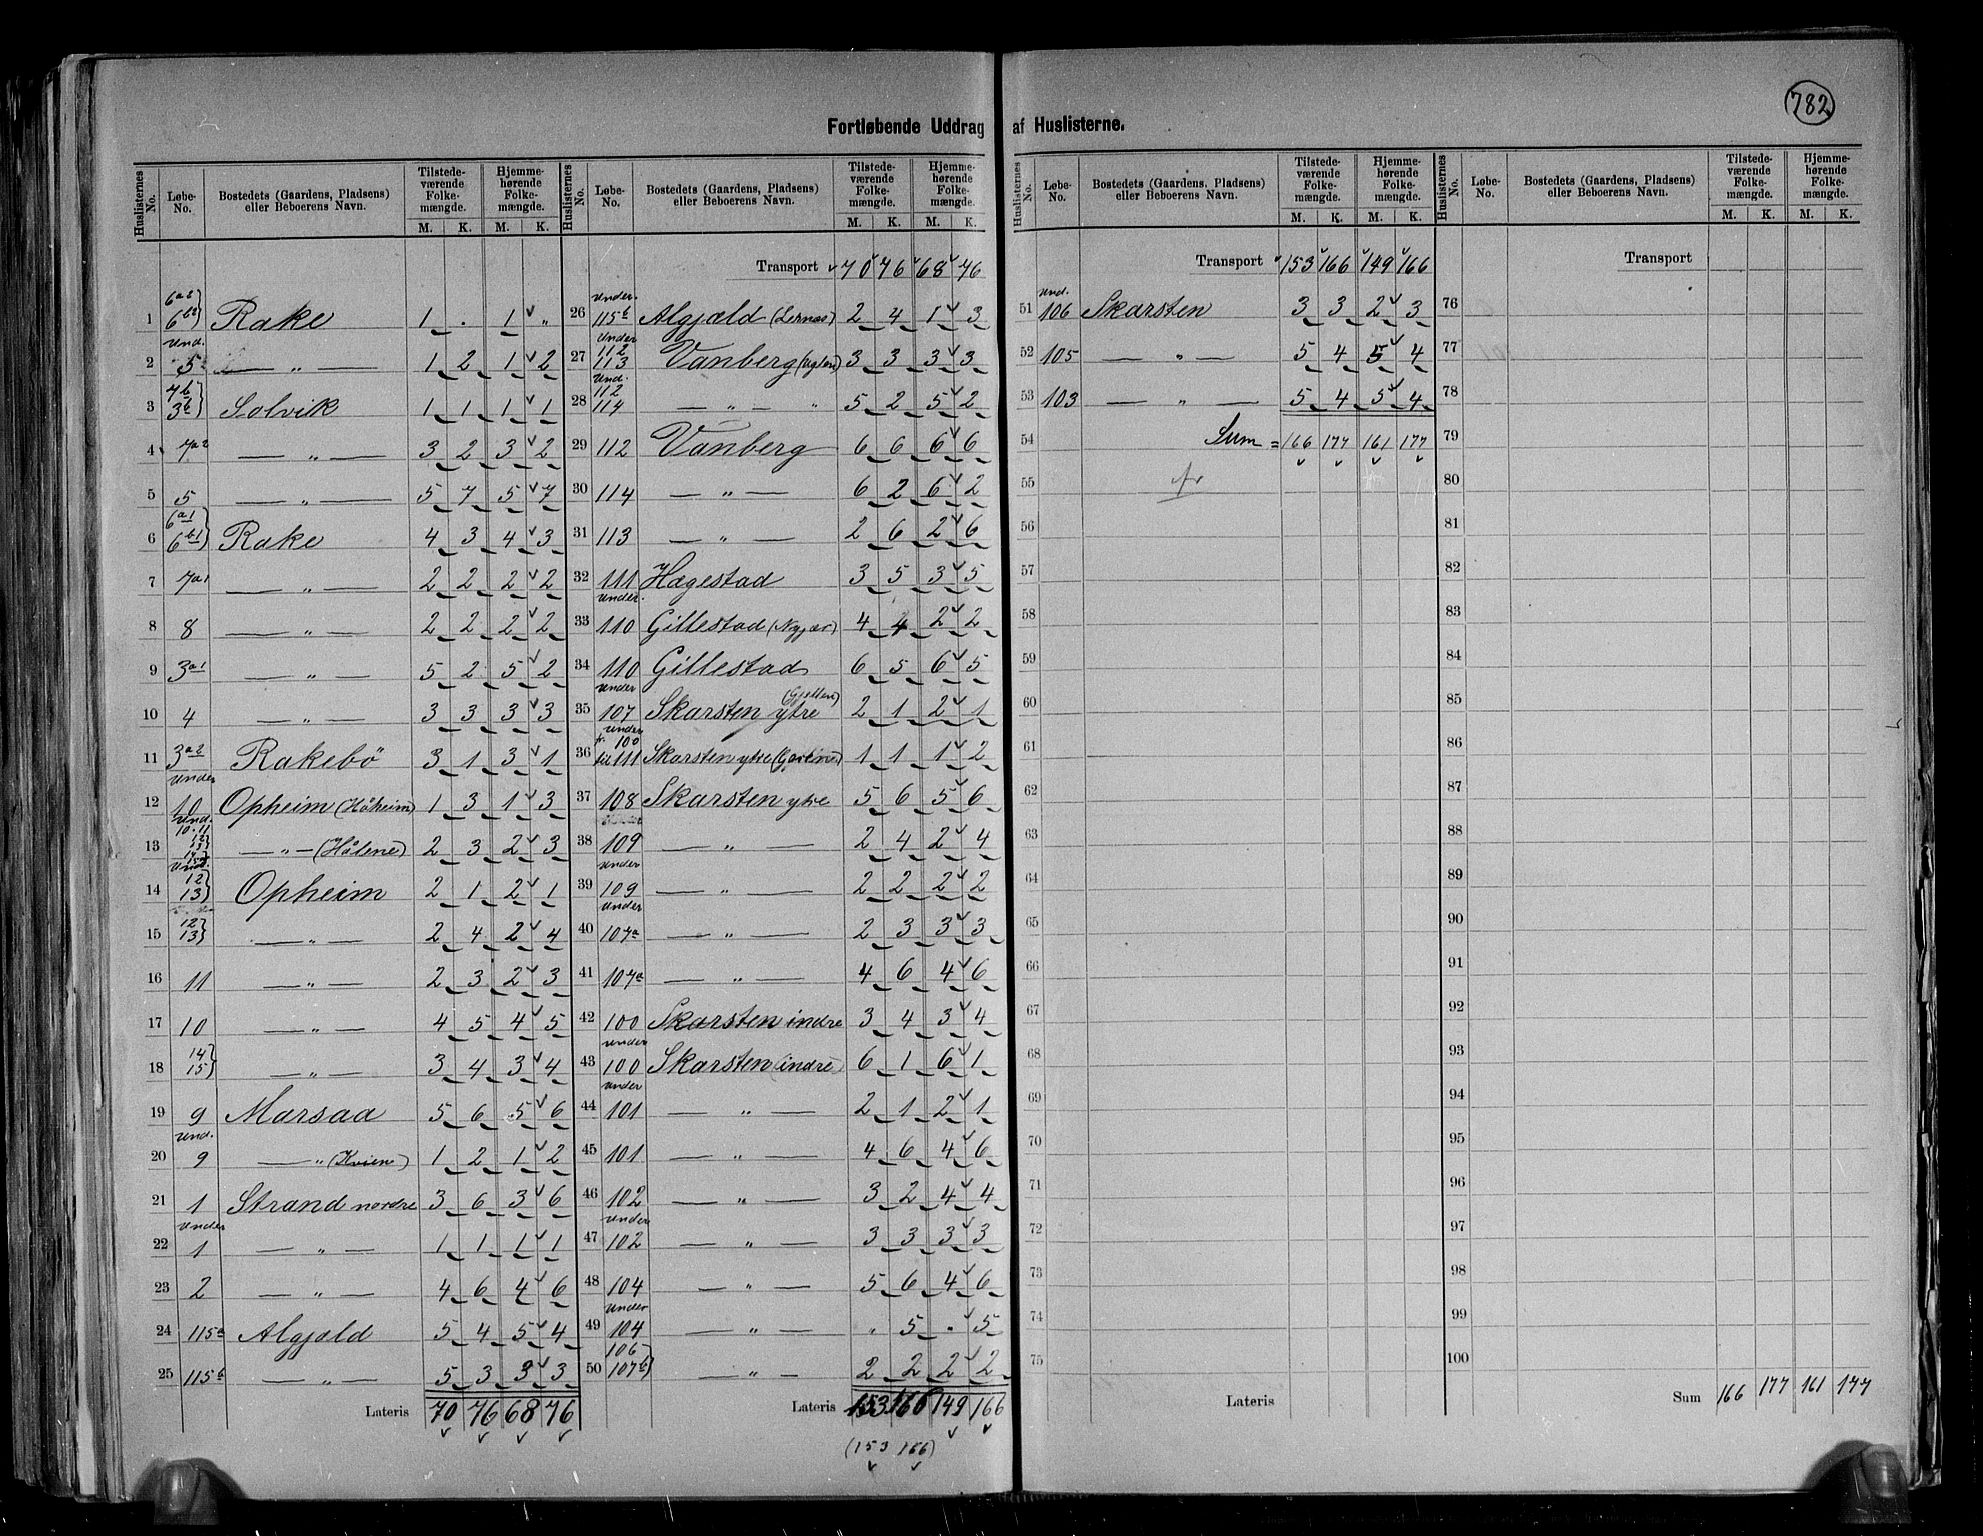 782
Fortløbende Uddrag af Huslisterne.
Huslisternes No. Løbe-No. Bostedets (Gaardens, Pladsens) eller Beboerens Navn. Tilstedeværende Folkemængde. M. K. Hjemmehørende Folkemængde. M. K.
1 6a2 6b2} Rake 1 . 1 „
2 Und. 5 — „ — 1 2 1 2
3 7b 3b} Solvik 1 1 1 1
4 7a2 — „ — 3 2 3 2
5 5 — „ — 5 7 5 7
6 6a1 6b1} Rake 4 3 4 3
7 7a1 — „ — 2 2 2 2
8 8 — „ — 2 2 2 2
9 3a1 — „ — 5 2 5 2
10 4 — „ — 3 3 3 3
11 3a2 Rakebö 3 1 3 1
12 Under 10 Opheim (Håheim) 1 3 1 3
13 Und. 10.11 12 13 — „ — (Hålene) 2 3 2 3
14 Und. 12 13} Opheim 2 1 2 1
15 12 13} — „ — 2 4 2 4
16 11 — „ — 2 3 2 3
17 10 — „ — 4 5 4 5
18 14 15} — „ — 3 4 3 4
19 9 Marsaa 5 6 5 6
20 Und. 9 — „ (Kvien) 1 2 1 2
21 1 Strand nordre 3 6 3 6
22 Under 1 — „ — 1 1 1 1
23 2 — „ — 4 6 4 6
24 115a Algjæld 5 4 5 4
25 115b — „ — 5 3 3 3
Lateris 70 76 68 76
Huslisternes No. Løbe-No. Bostedets (Gaardens, Pladsens) eller Beboerens Navn. Tilstedeværende Folkemængde. M. K. Hjemmehørende Folkemængde. M. K.
Transport 70 76 68 76
26 Under. 115b Algjæld (Lernæs) 2 4 1 3
27 Under 112 113 Vanberg (Uglen) 3 3 3 3
28 Und. 112 114 — „ — „ 5 2 5 2
29 112 Vanberg 6 6 6 6
30 114 — „ — 6 2 6 2
31 113 — „ — 2 6 2 6
32 111 Hagestad 3 5 3 5
33 Under. 110 Gillestad (Nygjær) 4 4 2 2
34 110 Gillestad 6 5 6 5
35 Under 107 Skarsten ytre (Gjellen) 2 1 2 1
36 Under fr. 100 til 111 Skarsten ytre 1 1 1 2
37 108 Skarsten ytre 5 6 5 6
38 109 — „ — 2 4 2 4
39 Under 109 — „ — 2 2 2 2
40 Under 107a — „ — 2 3 3 3
41 107a — „ — 4 6 4 6
42 100 Skarsten indre 3 4 3 4
43 Under 100 Skarsten indre 6 1 6 1
44 Under 101 — „ — 2 1 2 1
45 101 — „ — 4 6 4 6
46 102 — „ — 3 2 4 4
47 Under 102 — „ — 3 3 3 3
48 104 — „ — 5 6 4 6
49 Under 104 — „ — „ 5 „ 5
50 106 107b} — „ — 2 2 2 2
Lateris 153 166 149 166
(153 166)
Huslisternes No. Løbe-No. Bostedets (Gaardens, Pladsens) eller Beboerens Navn. Tilstedeværende Folkemængde. M. K. Hjemmehørende Folkemængde. M. K.
Transport 153 166 149 166
51 Und. 106 Skarsten 3 3 2 3
52 105 — „ — 5 4 5 4
53 103 — „ — 5 4 5 4
54 Sum = 166 177 161 177
55
56
57
58
59
60
61
62
63
64
65
66
67
68
69
70
71
72
73
74
75
Lateris
Huslisternes No. Løbe-No. Bostedets (Gaardens, Pladsens) eller Beboerens Navn. Tilstedeværende Folkemængde. M. K. Hjemmehørende Folkemængde. M. K.
Transport
76
77
78
79
80
81
82
83
84
85
86
87
88
89
90
91
92
93
94
95
96
97
98
99
100
Sum 166 177 161 177